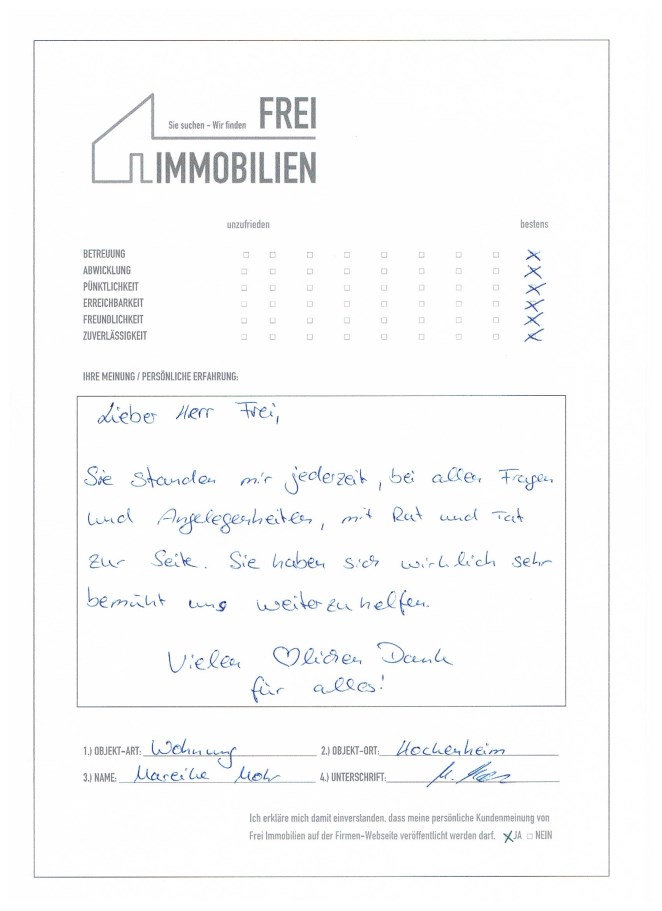 Sie suchen - Wir finden FREI
IMMOBILIEN
unzufrieden bestens
BETREUUNG
ABWICKLUNG
PÜNKTLICHKEIT
ERREICHBARKEIT
FREUNDLICHKEIT
ZUVERLÄSSIGKEIT
IHRE MEINUNG / PERSÖNLICHE ERFAHRUNG:
Lieber Herr Frei,
Sie standen mir jederzeit, bei allen Fragen
und Angelegenheiten, mit Rat und Tat
zur Seite. Sie haben sich wirklich sehr
bemüht uns weiterzuhelfen.
Vielen ♡lichen Dank
für alles!
1.) OBJEKT-ART: Wohnung 2.) OBJEKT-ORT: Hockenheim
3.) NAME: Mareike Mohr 4.) UNTERSCHRIFT: M.
Ich erkläre mich damit einverstanden, dass meine persönliche Kundenmeinung von
Frei Immobilien auf der Firmen-Webseite veröffentlicht werden darf. X JA □ NEIN